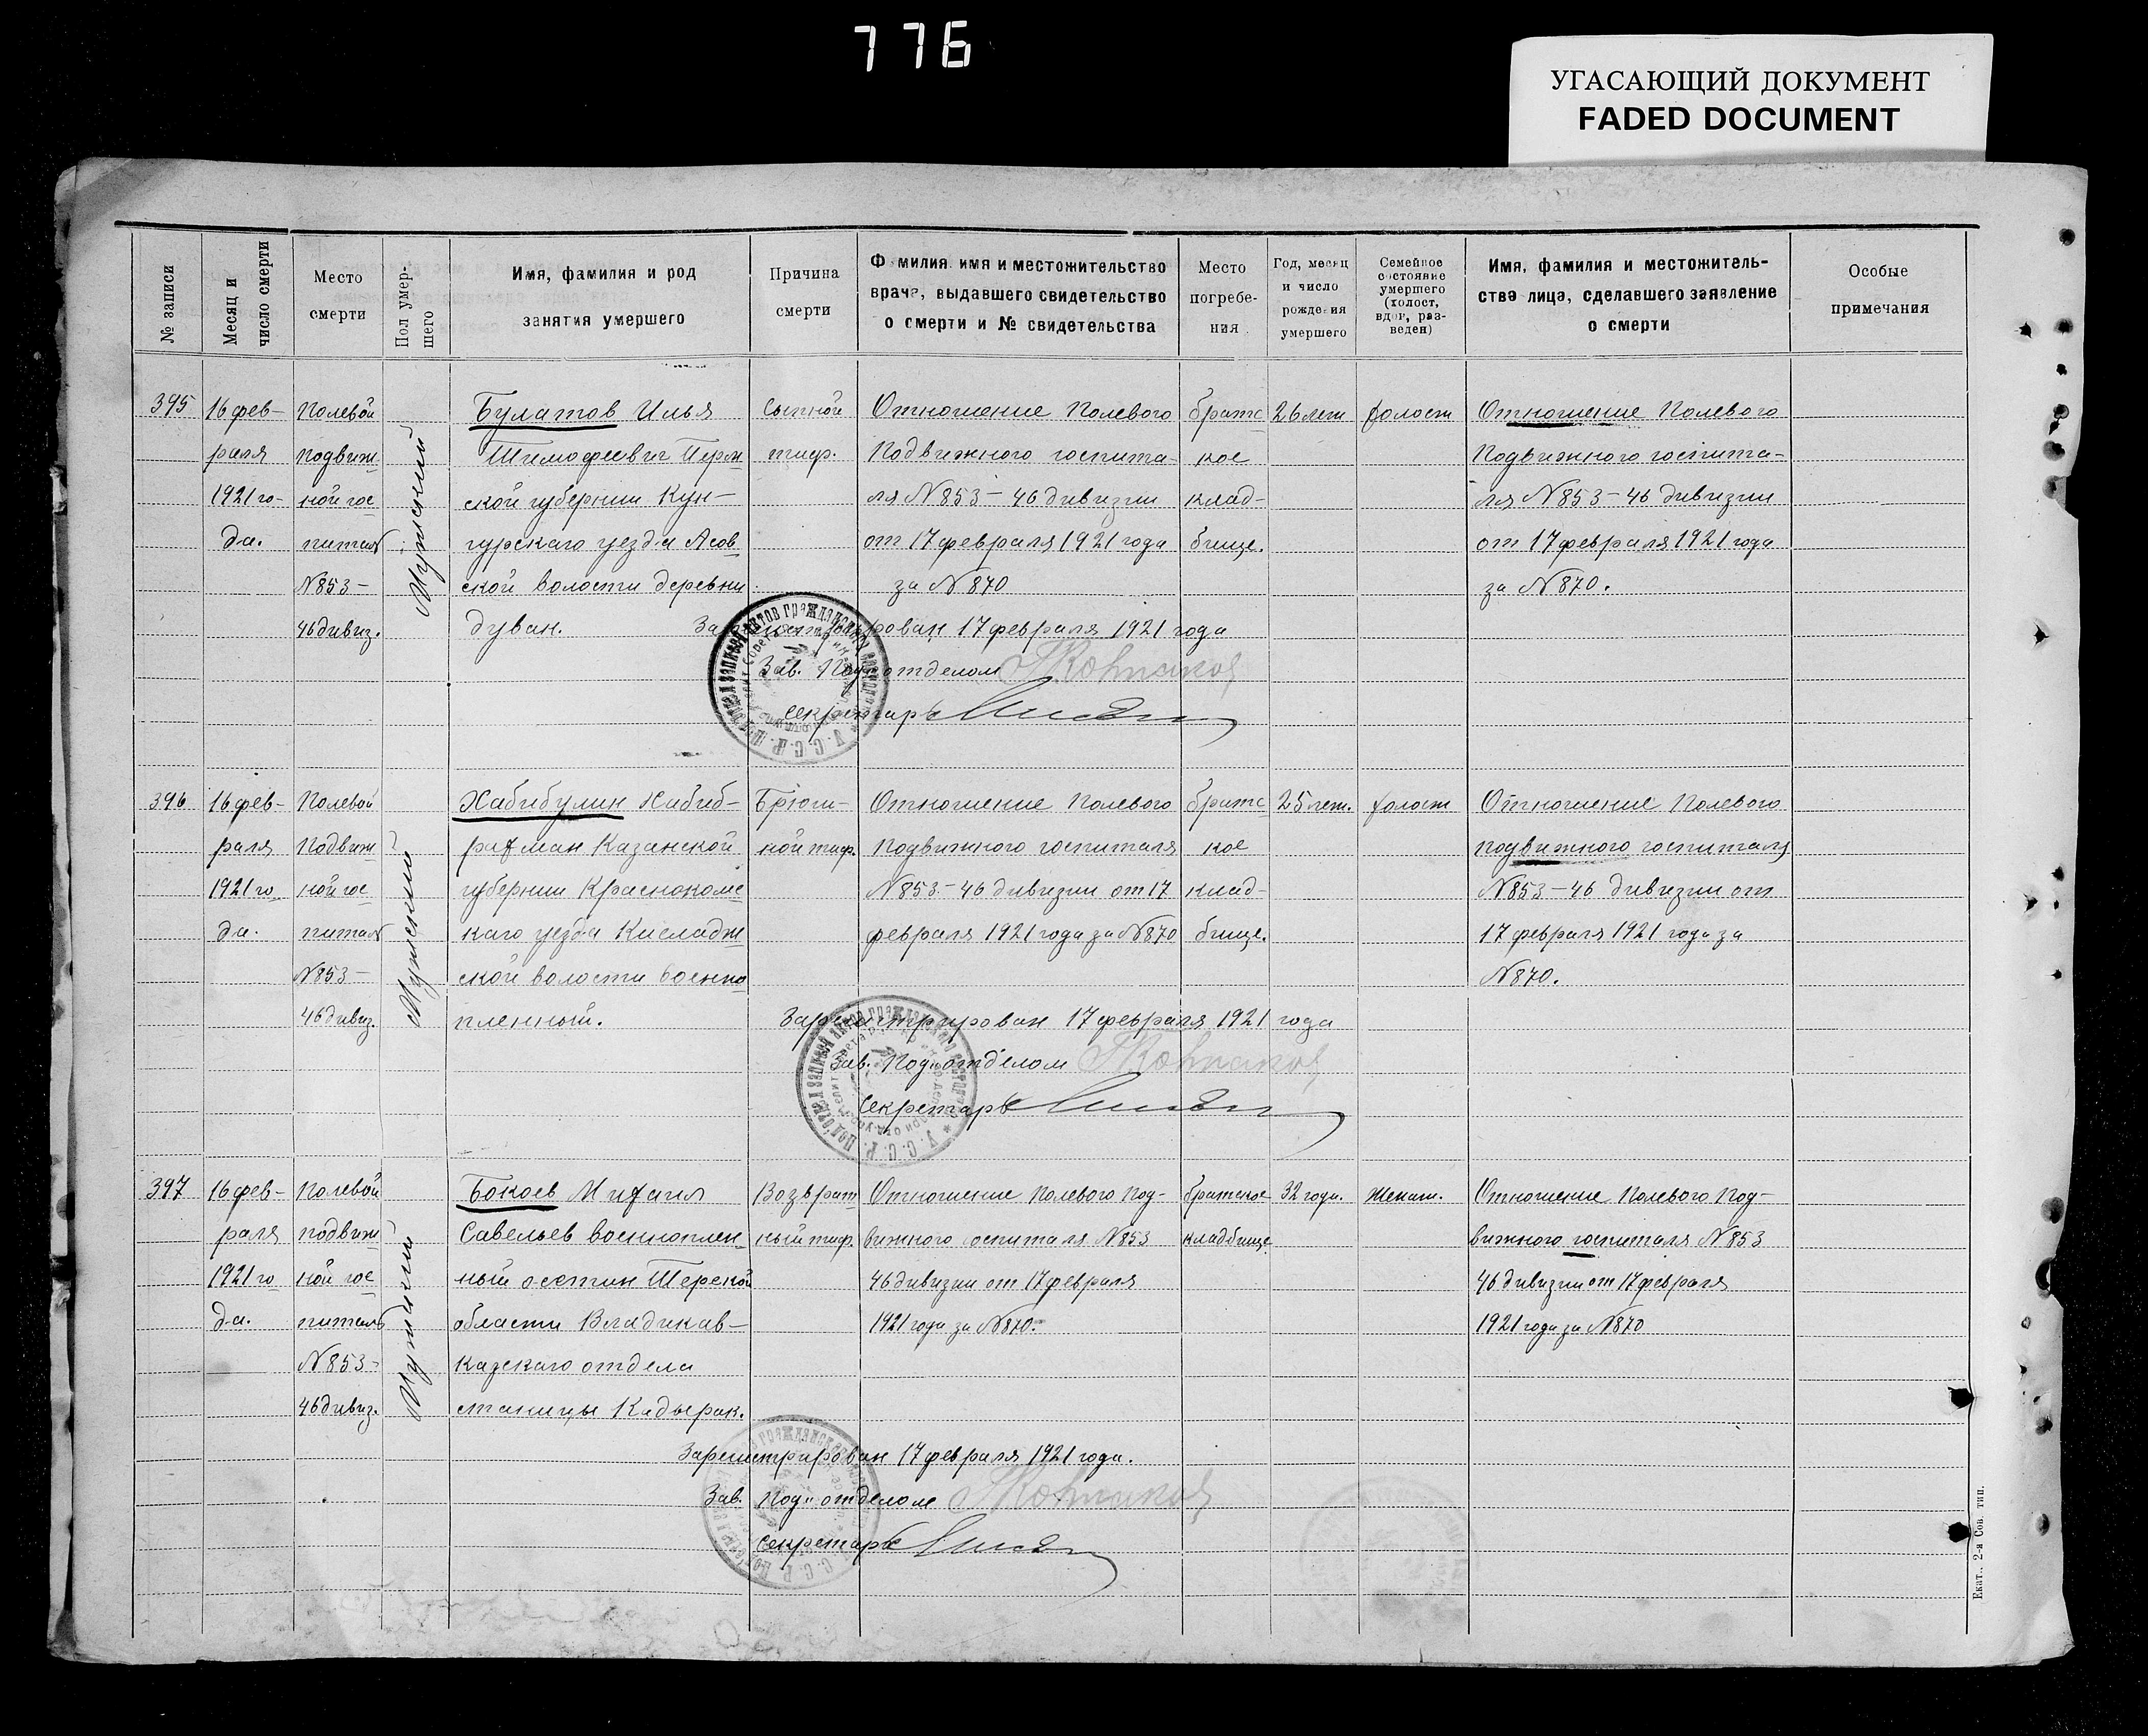 776
УГАСАЮЩИЙ ДОКУМЕНТ
FADED DOCUMENT
№ записи
Месяц и число смерти
Место смерти
Пол умер-
шего
Имя, фамилия и род
занятия умершего
Причина
смерти
Фамилия имя и местожительство
врача, выдавшего свидетельство
о смерти и № свидетельства
Место
погребе-
ния
Год, месяц
и число
рождения
умершего
Семейное
состояние
умершего
(холост,
вдов, раз-
веден)
Имя, фамилия и местожитель-
ства лица, сделавшего заявление
о смерти
Особые
примечания
395
16 фев-
раля
1921 го-
да.
Полевой
подвиж
ной гос
питаль
№ 853 -
46 дивиз.
Мужской
Булатов Илья
Тимофеевич Перм
ской губернии Кун-
гурскаго уезда Асов
ской волости деревни
дуван.
Сыпной
тиф.
Отношение Полевого
Подвижного госпита-
ля № 853 - 46 дивизии
от 17 февраля 1921 года
за № 870
братс
кое
клад-
бище.
26 лет
холост
Отношение Полевого
Подвижного госпита-
ля № 853 - 46 дивизии
от 17 февраля 1921 года
за № 870.
Зарегистрирован 17 февраля 1921 года
Зав. Под отделом
Секретарь
396
16 фев-
раля
1921 го
да.
Полевой
Подвиж
ной гос
питаль
№ 853 -
46 дивиз.
Мужской
Хабибулин Хабиб-
рахман Казанской
губернии Краснококс
каго уезда
ской волости военно
пленный.
Брюш-
ной тиф.
Отношение Полевого
подвижного госпиталя
№ 853 - 46 дивизии от 17
февраля 1921 года за № 870
братс
кое
клад-
бище.
25 лет.
холост
Отношение Полевого
подвижного госпиталя
№ 853 - 46 дивизии от
17 февраля 1921 года за
№ 870.
Зарегистрирован 17 февраля 1921 года
Зав. Под отделом
Секретарь
397
16 фев-
раля
1921 го
да.
Полевой
подвиж
ной гос
питаль
№ 853 -
46 дивиз.
Мужской
Бокоев Михаил
Савельев военноплен-
ный осетин Терской
области Владикав-
казскаго отдела
станицы Кадьерак.
Возврат
ный тиф.
Отношение Полевого Под-
вижного госпиталя № 853
46 дивизии от 17 февраля
1921 года за № 870.
братское
кладбище
32 года.
женат.
Отношение Полевого Под-
вижного госпиталя № 853
46 дивизии от 17 февраля
1921 года за № 870
Зарегистрирован 17 февраля 1921 года.
Зав. Под отделом
Секретарь
Екат., 2-я Сов. тип.